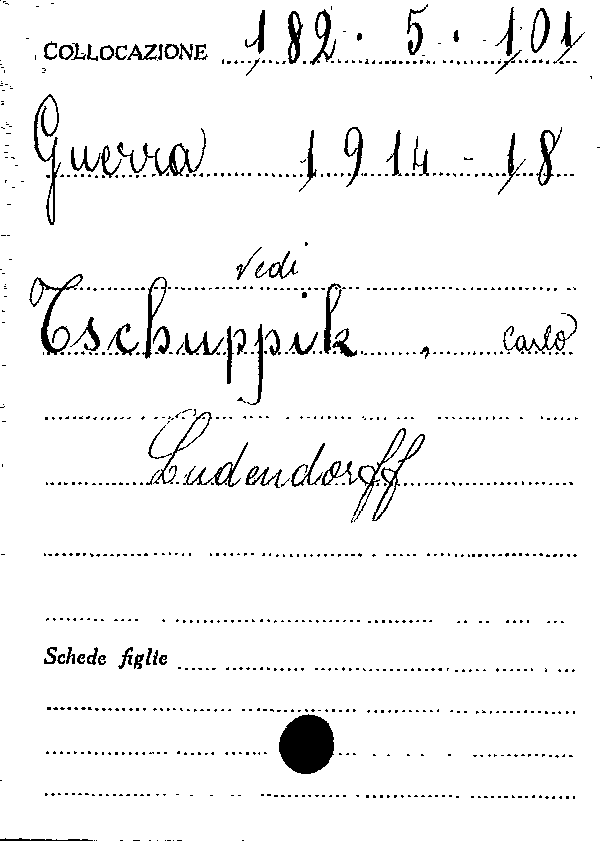 COLLOCAZIONE 182.5.101
Guerra 1914-18
vedi
Tschuppik, Carlo
Ludendorff
Schede figlie